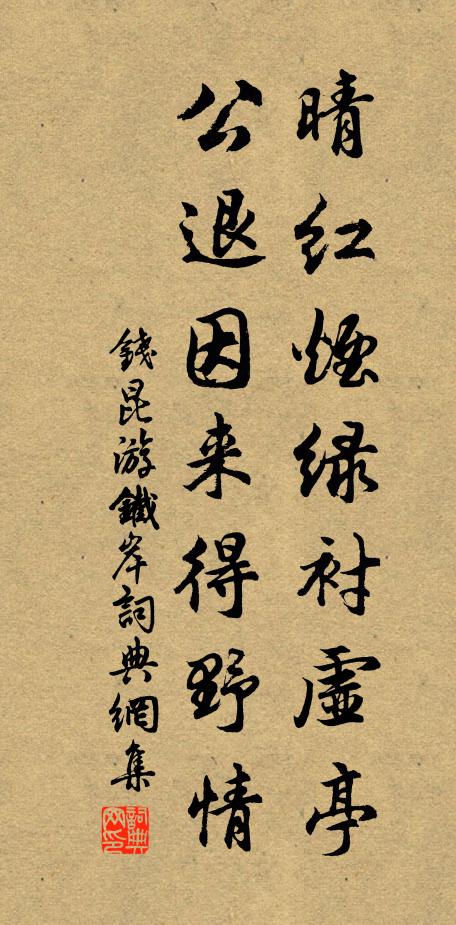 晴红煙绿衬虚亭
公退因来得野情
錢昆游鐵岸詞典網集
詞典网印